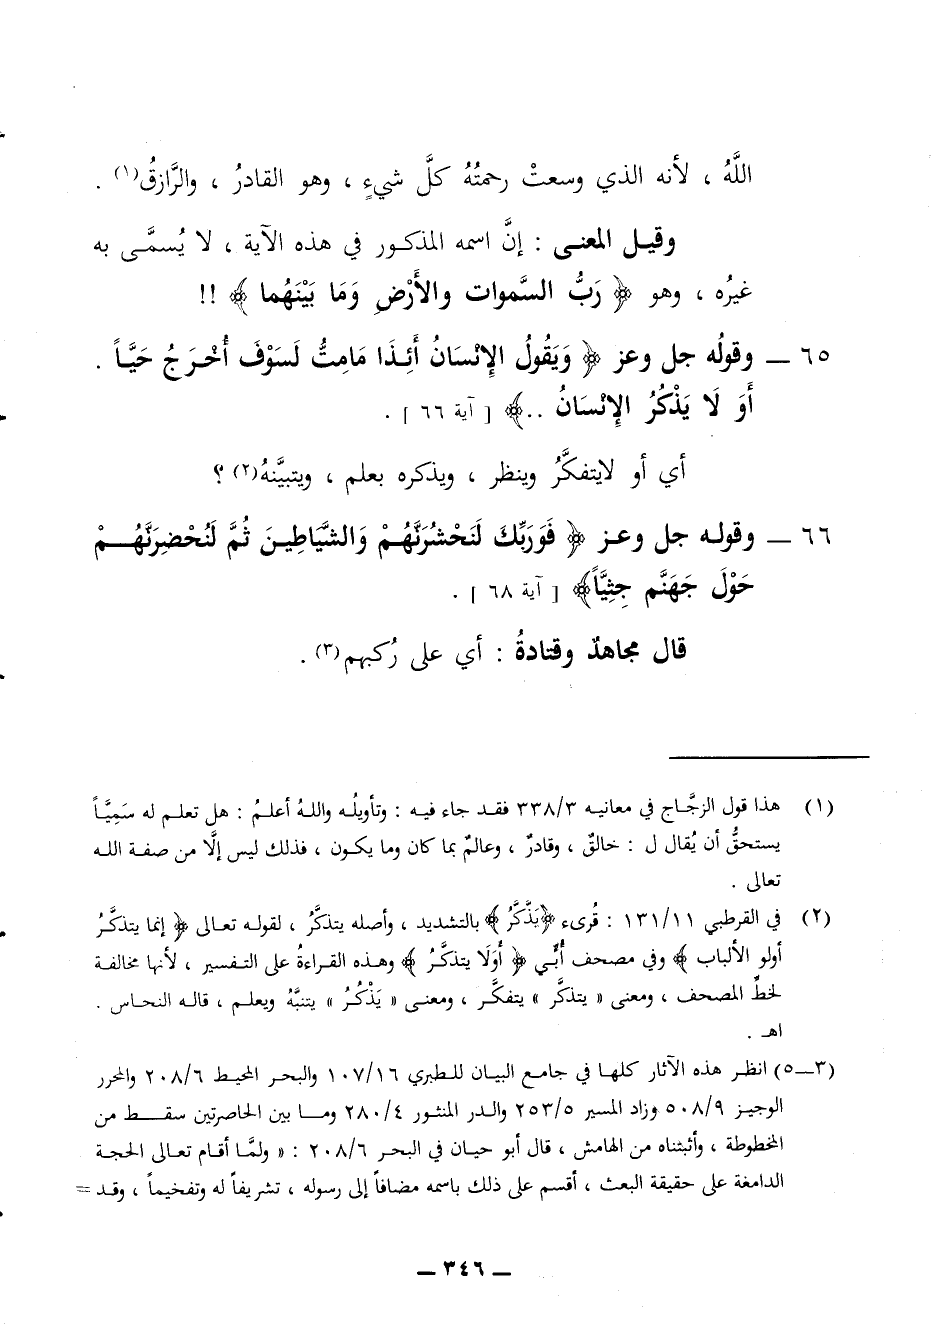 اللَّهُ ، لأنه الذي وسعتْ رحمتُهُ كلَّ شيءٍ ، وهو القادرُ ، والرَّازقُ(١) .
وقيـل المعنـى : إنَّ اسمه المذكـور في هذه الآية ، لا يُسمَّـى به
غيرُه ، وهو ﴿ رَبُّ السَّموات والأَرْضِ وَمَا بَيْنَهُما ﴾ !!
٦٥ ــ وقولُه جل وعز ﴿ وَيَقُولُ الإِنْسَانُ أَئِذَا مَامِتُّ لَسَوْفَ أُخْرَجُ حَيَّاً .
أَوَ لَا يَذْكُرُ الإِنْسَانُ ..﴾ [ آية ٦٦ ] .
أي أو لايتفكَّرُ وينظر ، ويذكره بعلم ، ويتبيَّنهُ(٢) ؟
٦٦ ــ وقولـه جل وعـز ﴿ فَوَرَبِّكَ لَنَحْشُرَنَّهُمْ وَالشَّيَاطِيـنَ ثُمَّ لَنُحْضِرَنَّهُـمْ
حَوْلَ جَهَنَّم جِثِيَّاً﴾ [ آية ٦٨ ] .
قال مجاهدٌ وقتادةُ : أي على رُكبهم(٣) .
(١) هذا قول الزجَّاج في معانيه ٣٣٨/٣ فقـد جاء فيـه : وتأويلُـه واللهُ أعلمُ : هل تعلم له سَمِيَّاً
يستحقُّ أن يُقال ل : خالقٌ ، وقادرٌ ، وعالمٌ بما كان وما يكون ، فذلك ليس إلَّا من صفـة اللـه
تعالى .
(٢) في القرطبي ١٣١/١١ : قُرىء ﴿يَذَّكَّرُ ﴾ بالتشديد ، وأصله يتذكَّرُ ، لقولـه تعـالى ﴿ إنما يتذكَّـرُ
أولو الألباب ﴾ وفي مصحف أُبّي ﴿ أَوَلَا يتذكَّـرُ ﴾ وهـذه القـراءةُ على التـفسير ، لأنها مخالفـة
لخطِّ المصحف ، ومعنى « يتذكَّر » يتفكَّـر ، ومعـنى « يَذْكُـرُ » يتنبَّهُ ويعلـم ، قالـه النحـاس .
اهـ .
(٣ــ٥) انظـر هذه الآثار كلهـا في جامع البيـان للطبري ١٠٧/١٦ والبحـر المحيـط ٢٠٨/٦ والمحرر
الوجيـز ٥٠٨/٩ وزاد المسير ٢٥٣/٥ والدر المنثور ٢٨٠/٤ ومـا بين الحاصرتين سقـط من
المخطوطة ، وأثبتناه من الهامش ، قال أبو حيان في البحر ٢٠٨/٦ : « ولمَّا أقام تعـالى الحجـة
الدامغة على حقيقة البعث ، أقسم على ذلك باسمه مضافاً إلى رسوله ، تشريفاً له وتفخيمـاً ، وقـد =
ــ ٣٤٦ ــ